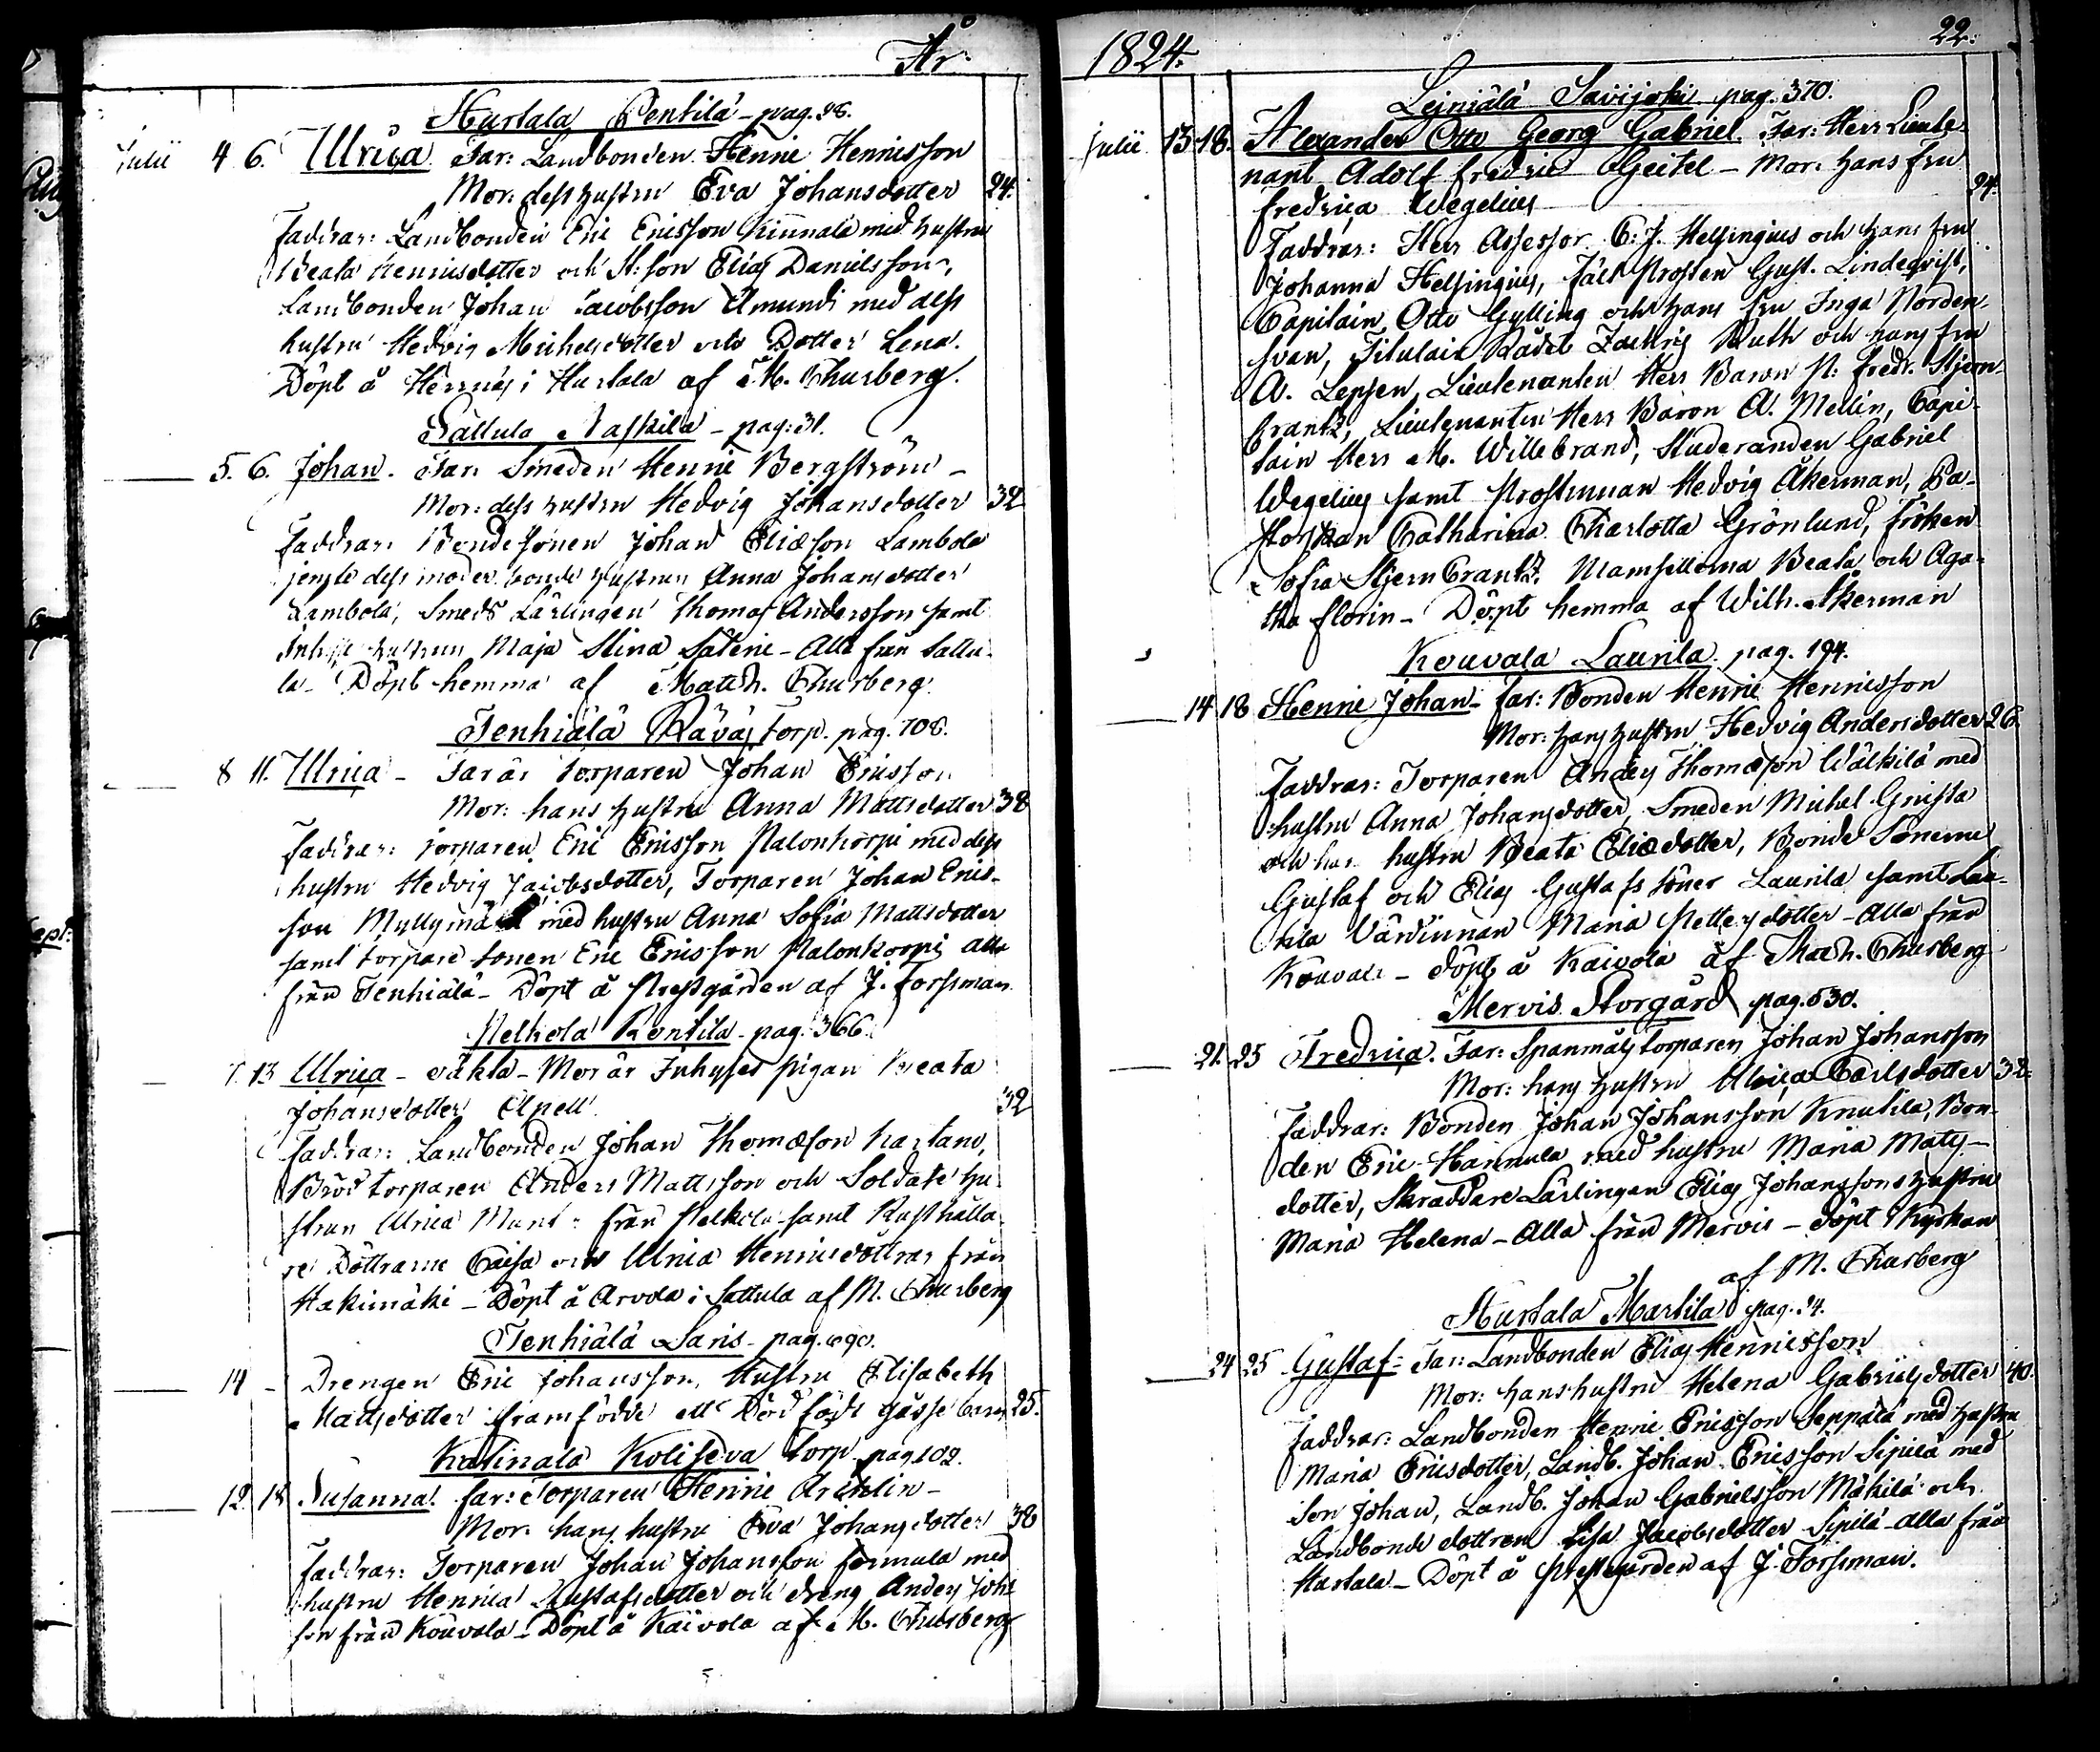 År
Hurtala Pentilä - pag. 28.
Julii 4 6. Ulrica. Far: Landbonden Henric Henricsson
Mor: dess hustru Eva Johansdotter 24.
Faddrar: Landbonden Eric Ericsson Kinnala med hustru
Beata Henricsdotter och St: son Elias Danielsson,
Landbonden Johan Jacobsson Amundi med dess
hustru Hedvig Michelsdotter och Dotter Lena.
Döpt å i Hurtala af M. Thurberg.
Sattula Naskila - pag: 31.
5. 6. Johan. Far: Smeden Henric Bergström -
Mor: dess hustru Hedvig Johansdotter 32
Faddrar: Bonde Sonen Johan Eliæson Lambola
jemte dess moder bonde hustrun Anna Johansdotter
Lambola, Smeds Lärlingen Thomas Andersson samt
Inhyses hustrun Maja Stina - Alla från Sattu-
la - Döpt hemma af Matth. Thurberg.
Tenhiälä Räväs Torp. pag. 108.
8 11. Ulrica - Far är Torparen Johan Ericsson
Mor: hans hustru Anna Mattsdotter 38
Faddrar: Torparen Eric Ericsson Palonkorpi med dess
hustru Hedvig Jacobsdotter, Torparen Johan Erics-
son Myllymä med hustru Anna Sofia Mattsdotter
samt torpare sonen Eric Ericsson Palonkorpi alla
från Tenhiälä - Döpt å Prestgården af J. Forssman
Pelkola Konkila - pag. 366.
7. 13 Ulrica - oäkta - Mor är Inhyses pigan Beata
Johansdotter Apell 32
Faddrar: Landbonden Johan Thomæson Kartano,
torparen Anders Mattsson och Soldats hu-
strun Ulrica Munt - från Pelkola samt Rusthålla-
re Döttrarne Caisa och Ulrica Henricsdöttrar från
Hakimäki - Döpt å Arvola i Sattula af M. Thurberg
Tenhiälä Saris - pag. 690.
14 - Drengen Eric Johansson, Hustru Elisabeth
Mattsdotter framfödde ett Död födt gosse barn 25.
Katinala Koliseva Torp pag 102.
12 18 Susanna. Far: Torparen Henric -
Mor: hans hustru Eva Johansdotter 38
Faddrar: Torparen Johan Johansson med
hustru Henrica Gustafsdotter och dreng Anders Johs
son från Kouvala - Döpt å Kaivola af M. Thurberg
1824. 22.
Leiniälä Savijoki pag. 370.
Julii 13 18. Alexander Otto Georg Gabriel. Far: Herr Lieute-
nant Adolf Fredric Geitel - Mor: hans fru
Fredrica Wegelius 24.
Faddrar: Herr Assessor C: J. Helsingius och hans fru
Johanna Helsingius, Fält Prosten Gust. Lindeqvist,
Capitain Otto Gylling och hans fru Inga Norden-
svan, Titulair Rådet Zachris Ruth och hans fru
A. Lepsen, Lieutenanten Herr Baron N: Fredr. Stjern-
crantz, Lieutenanten Herr Baron A. Mellin, Capi-
tain Herr M. Willebrand, Studeranden Gabriel
Wegelius samt Prostinnan Hedvig Åkerman, Pa-
storskan Catharina Charlotta Grönlund, Fröken
Sofia Stjerncrantz, Mamsellerna Beata och Aga-
tha Florin - Döpt hemma af Wilh. Åkerman
Kouvala Laurila. pag. 194.
14 18 Henric Johan - far: Bonden Henric Henricsson
Mor: hans hustru Hedvig Andersdotter 26.
Faddrar: Torparen Anders Thomæson Wälkilä med
hustru Anna Johansdotter, Smeden Michel Gnista
och hans hustru Beata Eliædotter, Bonde Sönerne
Gustaf och Elias Gustafs söner Laurila samt Lau-
rila Värdinnan Maria Pettersdotter - Alla från
Kouvala - döpt å Kaivola af Matth. Thurberg
Mervis Storgård pag. 530.
21. 25 Fredrica. Far: Spanmåls torparen Johan Johansson
Mor: hans hustru Ulrica Carlsdotter 32.
Faddrar: Bonden Johan Johansson Knutila, Bon-
den Eric Hannula med hustru Maria Mats-
dotter, Skräddare Lärlingen Elias Johanssons hustru
Maria Helena - Alla från Mervis - döpt i Kyrkan
af M. Thurberg
Hurtala Martila pag. 24.
24 25 Gustaf - Far: Landbonden Elias Henricsson
Mor: hans hustru Helena Gabrielsdotter 40.
Faddrar: Landbonden Henric Ericsson Seppälä med hustru
Maria Ericsdotter, Landb. Johan Ericsson Sipilä med
Son Johan, Landb. Johan Gabrielsson Mäkilä och
Landbonde dottren Lisa Jacobsdotter Sipilä - alla från
Hurtala - Döpt å Prestgården af J. Forssman.
Sept: